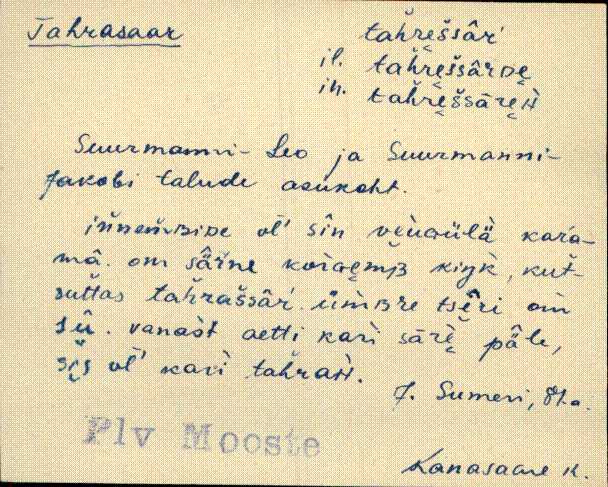 Tahrasaar
tahrešsâr'
il. tahrešsârDe
in. tahrešsāreH
Suurmanni-Leo ja Suurmanni-
Jakobi talude asukoht.
iňneňBiDe ol' sîn
kara-
mâ. om särne kiŋk, kut-
suttas tahrašsâr'. ümBre tsêri om
sû. vanast aetti kari sāre pâle,
sis ol' kari tahraH.
J. Sumeri, 81 a.
Plv Mooste
Kanasaare k.